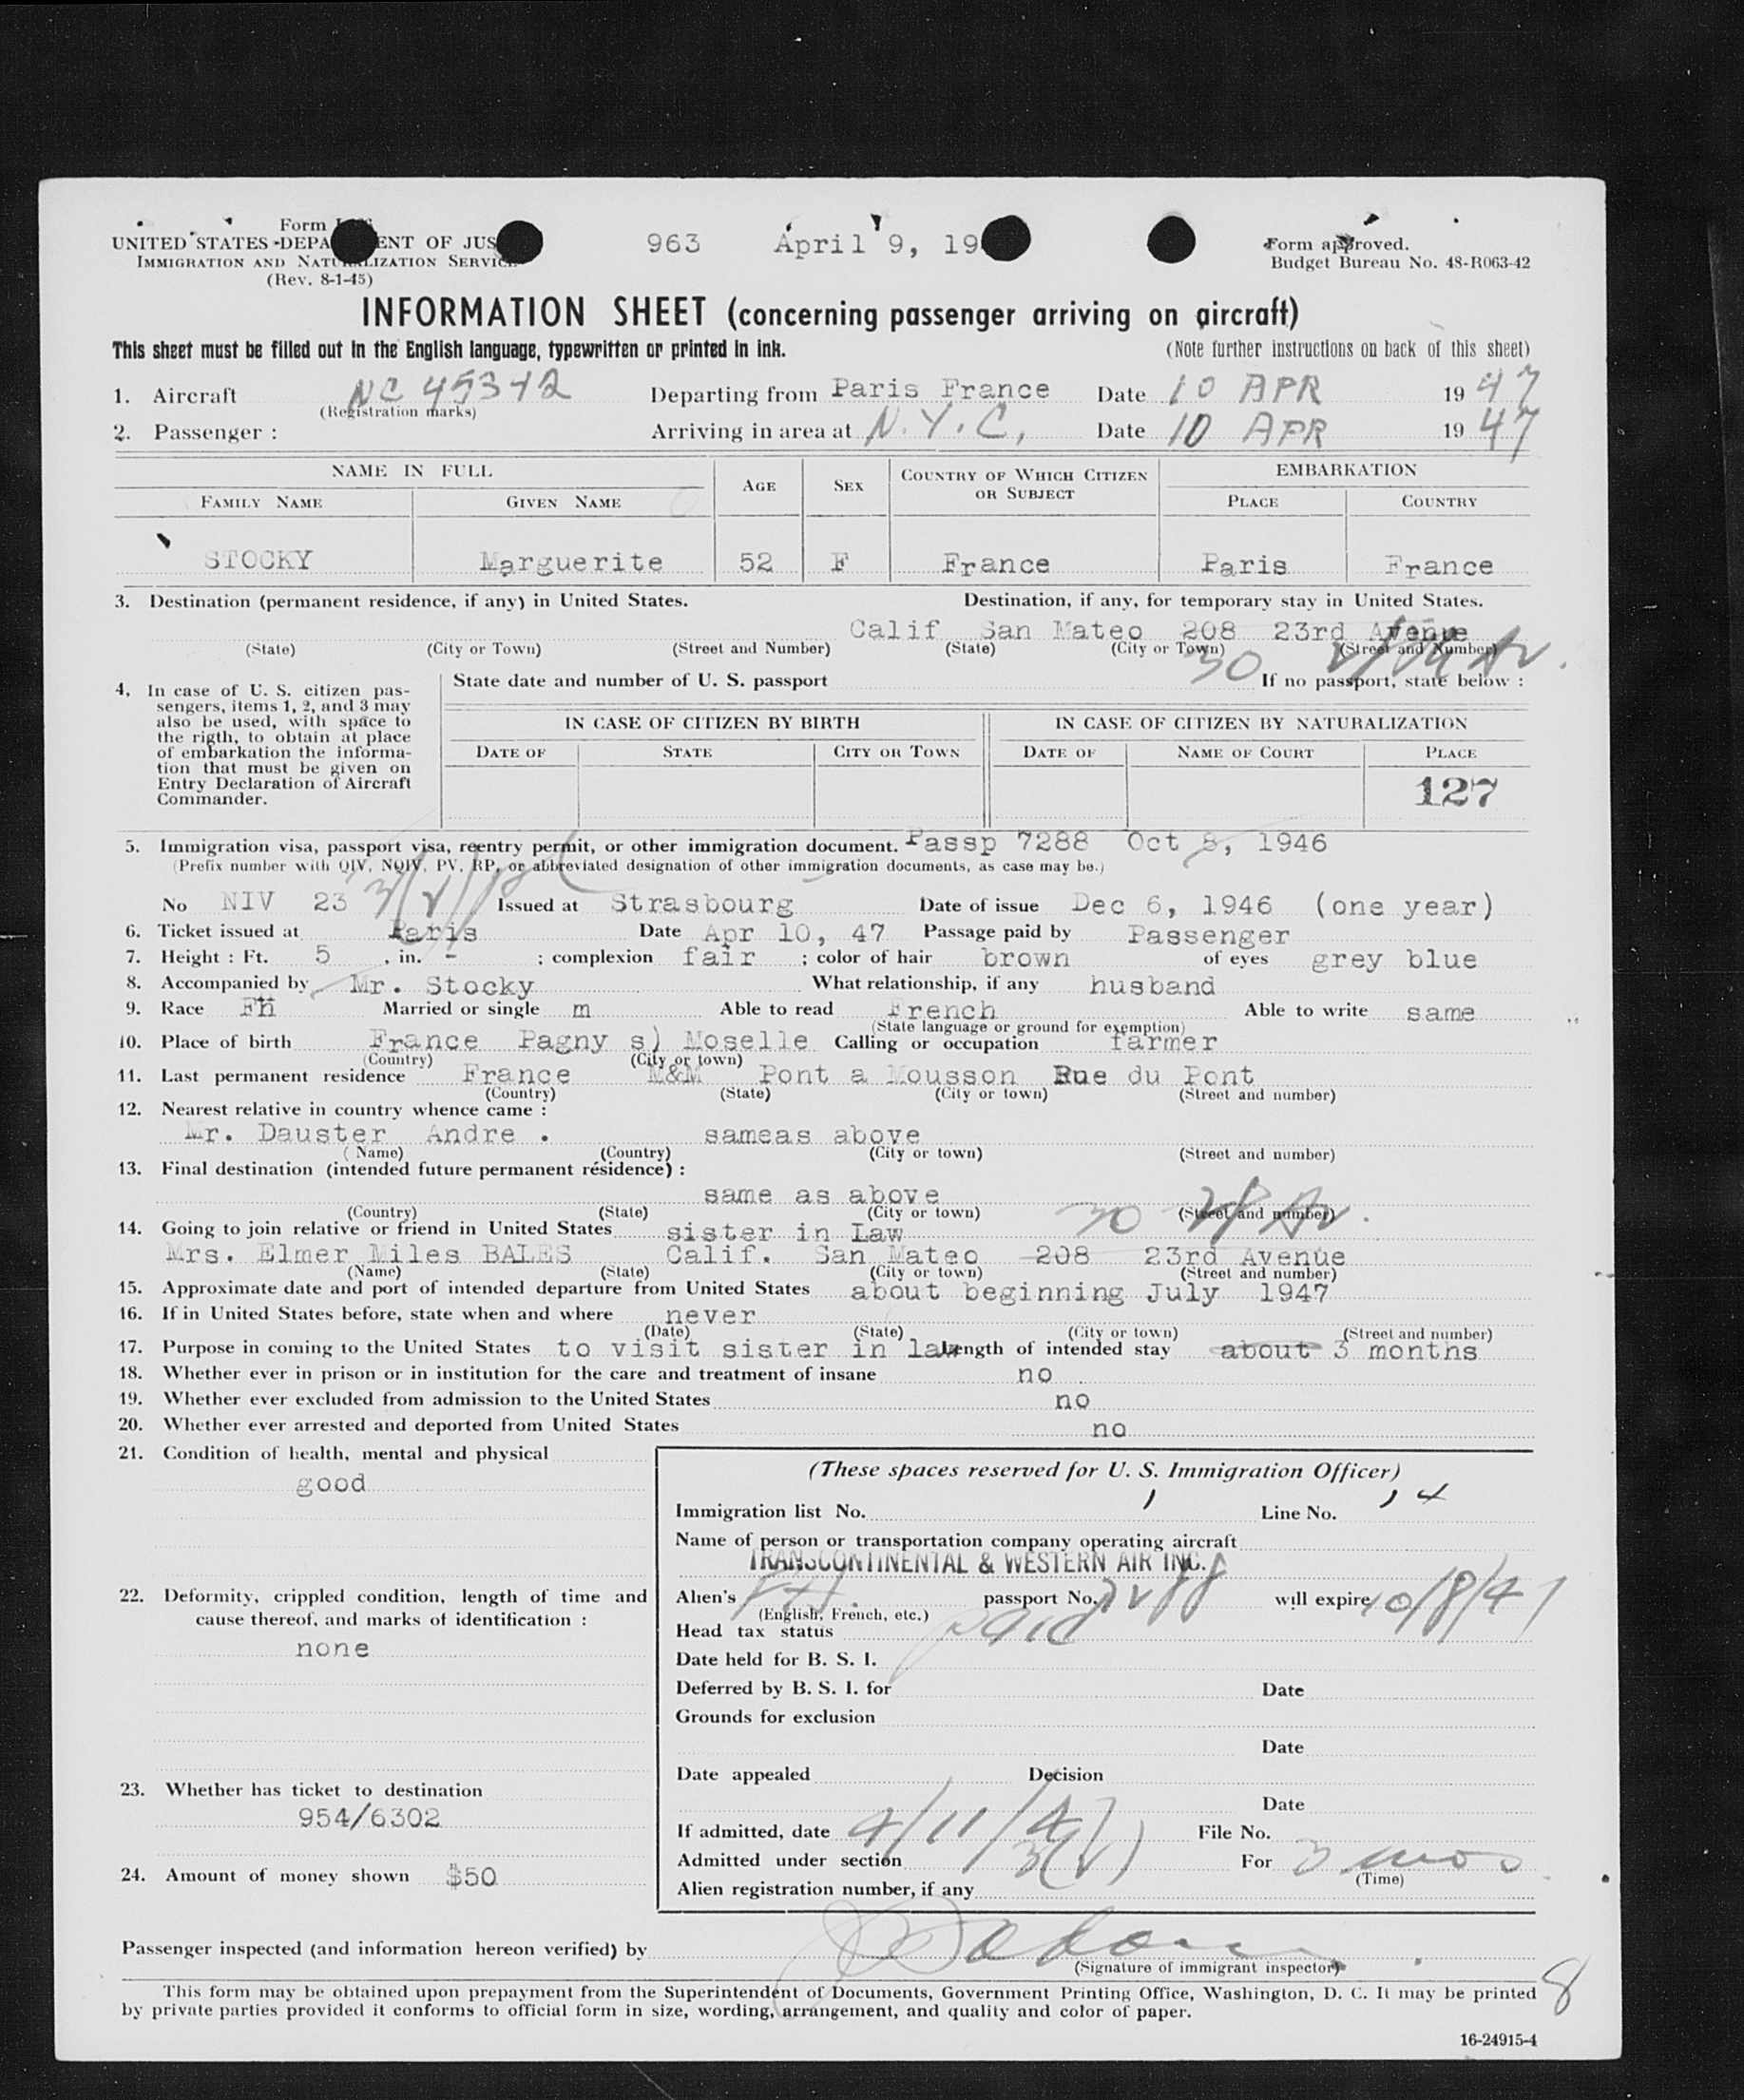 Form
UNITED STATES DEPA ENT OF JUS 963 April 9, 19 Form approved.
IMMIGRATION AND NATURALIZATION SERVICE Budget Bureau No. 48-R063-42
(Rev. 8-1-45)
INFORMATION SHEET (concerning passenger arriving on aircraft)
This sheet must be filled out in the English language, typewritten or printed in ink. (Note further instructions on back of this sheet)
1. Aircraft NC 45342 Departing from Paris France Date 10 APR 1947
(Registration marks)
2. Passenger : Arriving in area at N.Y.C, Date 10 APR 1947
NAME IN FULL AGE SEX COUNTRY OF WHICH CITIZEN OR SUBJECT EMBARKATION
FAMILY NAME GIVEN NAME PLACE COUNTRY
STOCKY Marguerite 52 F France Paris France
3. Destination (permanent residence, if any) in United States. Destination, if any, for temporary stay in United States.
Calif San Mateo 208 23rd Avenue
(State) (City or Town) (Street and Number) (State) (City or Town) (Street and Number)
30
4. In case of U. S. citizen pas-
sengers, items 1, 2, and 3 may
also be used, with space to
the rigth, to obtain at place
of embarkation the informa-
tion that must be given on
Entry Declaration of Aircraft
Commander.
State date and number of U. S. passport If no passport, state below :
IN CASE OF CITIZEN BY BIRTH IN CASE OF CITIZEN BY NATURALIZATION
DATE OF STATE CITY OR TOWN DATE OF NAME OF COURT PLACE
127
5. Immigration visa, passport visa, reentry permit, or other immigration document. Passp 7288 Oct 8, 1946
(Prefix number with QIV, NQIV, PV, RP, or abbreviated designation of other immigration documents, as case may be.)
No NIV 23 Issued at Strasbourg Date of issue Dec 6, 1946 (one year)
6. Ticket issued at Paris Date Apr 10, 47 Passage paid by Passenger
7. Height : Ft. 5 , in. - ; complexion fair ; color of hair brown of eyes grey blue
8. Accompanied by Mr. Stocky What relationship, if any husband
9. Race Married or single m Able to read French Able to write same
(State language or ground for exemption)
10. Place of birth France Pagny s) Moselle Calling or occupation farmer
(Country) (City or town)
11. Last permanent residence France M&M Pont a Mousson Rue du Pont
(Country) (State) (City or town) (Street and number)
12. Nearest relative in country whence came :
Mr. Dauster Andre . sameas above
(Name) (Country) (City or town) (Street and number)
13. Final destination (intended future permanent résidence) :
same as above
(Country) (State) (City or town) (Street and number)
30
14. Going to join relative or friend in United States sister in Law
Mrs. Elmer Miles BALES Calif. San Mateo 208 23rd Avenue
(Name) (State) (City or town) (Street and number)
15. Approximate date and port of intended departure from United States about beginning July 1947
16. If in United States before, state when and where never
(Date) (State) (City or town) (Street and number)
17. Purpose in coming to the United States to visit sister in law Length of intended stay about 3 months
18. Whether ever in prison or in institution for the care and treatment of insane no
19. Whether ever excluded from admission to the United States no
20. Whether ever arrested and deported from United States no
21. Condition of health, mental and physical
good
22. Deformity, crippled condition, length of time and
cause thereof, and marks of identification :
none
23. Whether has ticket to destination
954/6302
24. Amount of money shown $50
(These spaces reserved for U. S. Immigration Officer)
Immigration list No. 1 Line No. 14
Name of person or transportation company operating aircraft
TRANSCONTINENTAL & WESTERN AIR INC.
Alien's passport No. 7288 will expire 10/8/47
(English, French, etc.)
Head tax status paid
Date held for B. S. I.
Deferred by B. S. I. for Date
Grounds for exclusion
Date
Date appealed Decision
Date
If admitted, date 4/11/47 File No.
Admitted under section 3(2) For 3 mos
(Time)
Alien registration number, if any
Passenger inspected (and information hereon verified) by
(Signature of immigrant inspector)
8
This form may be obtained upon prepayment from the Superintendent of Documents, Government Printing Office, Washington, D. C. It may be printed
by private parties provided it conforms to official form in size, wording, arrangement, and quality and color of paper.
16-24915-4